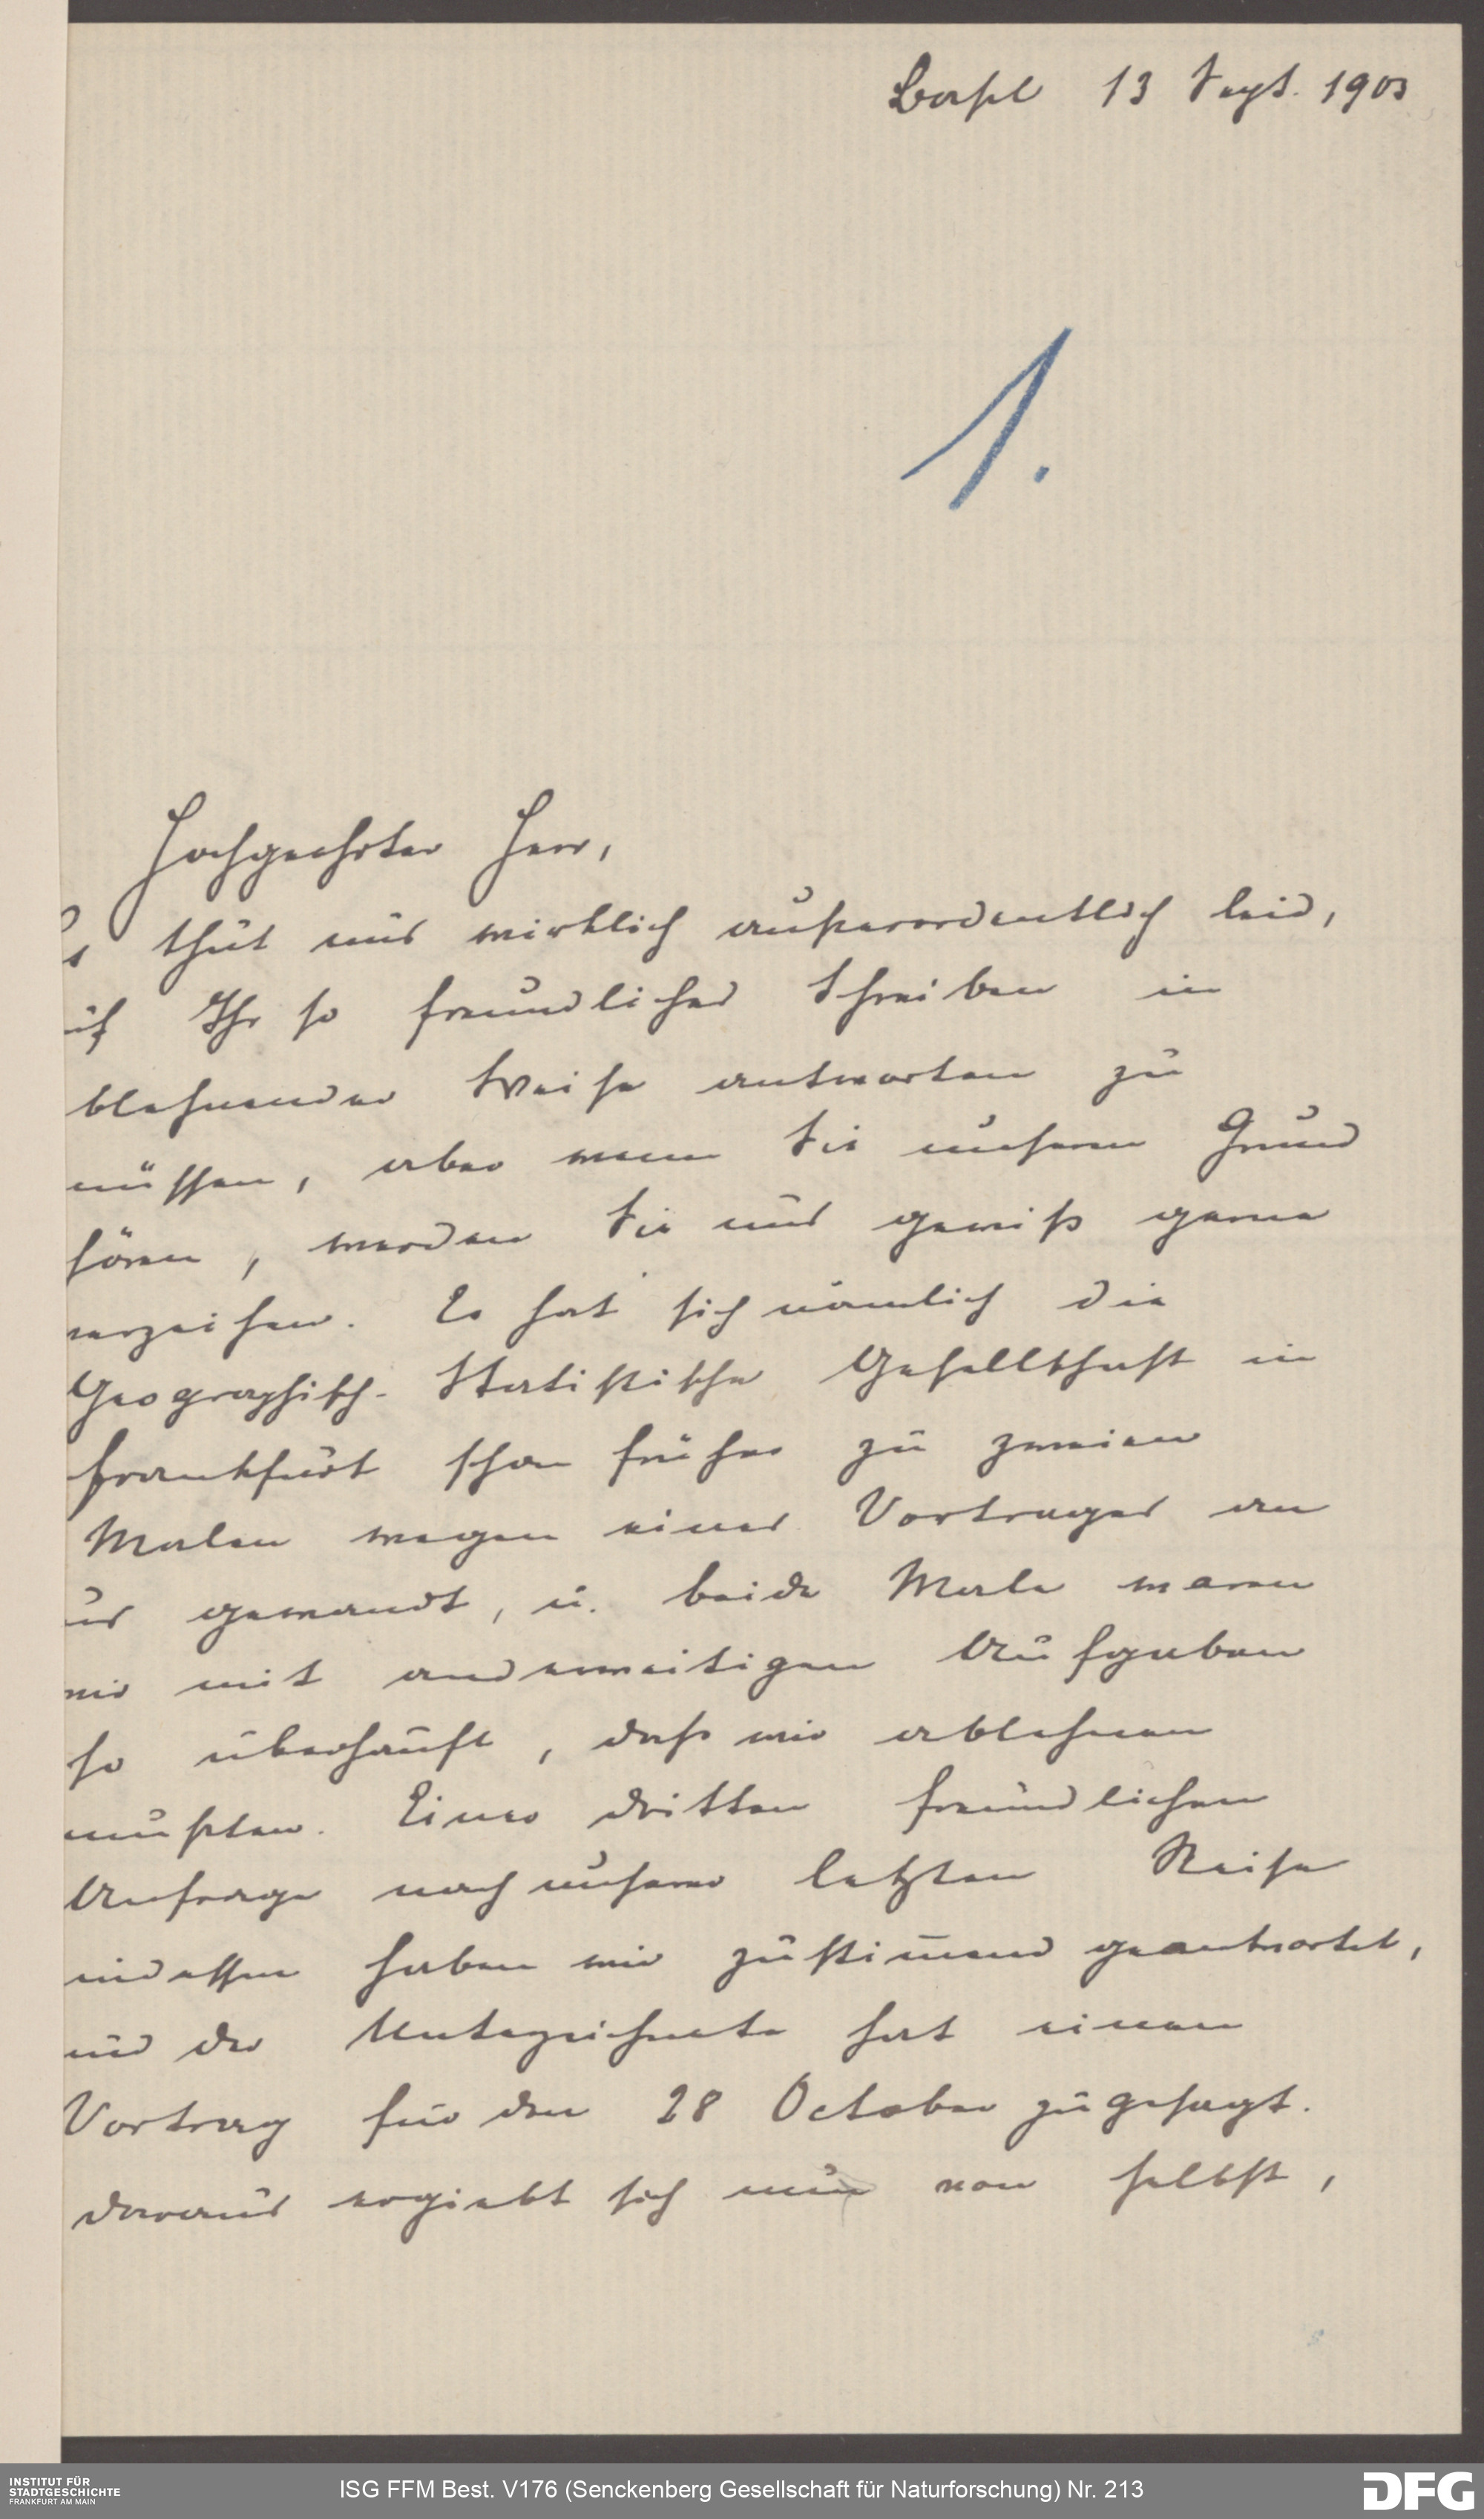 Basel 13 Sept. 1903
1.
Hochgeehrter Herr,
Es thut uns wirklich außerordentlich leid,
auf Ihr so freundliches Schreiben in
blehnender Weise antworten zu
müssen, aber wenn Sie unseren Grund
hören, werden Sie uns gewiß gerne
verzeihen. Es hat sich nämlich die
Geographisch-Statistische Gesellschaft in
Frankfurt schon früher zu zweien
Malen wegen eines Vortrages an
uns gewandt, u. beide Male waren
wir mit anderweitigen Aufgaben
so überhäuft, daß wir ablehnen
mußten. Einer dritten freundlichen
Anfrage nach unserer letzten Reise
indessen haben wir zustim̄end geantwortet,
und der Unterzeichnete hat einen
Vortrag für den 28 October zugesagt.
Daraus ergiebt sich nun von selbst,
INSTITUT FÜR
STADTGESCHICHTE
FRANKFURT AM MAIN
ISG FFM Best. V176 (Senckenberg Gesellschaft für Naturforschung) Nr. 213
DFG